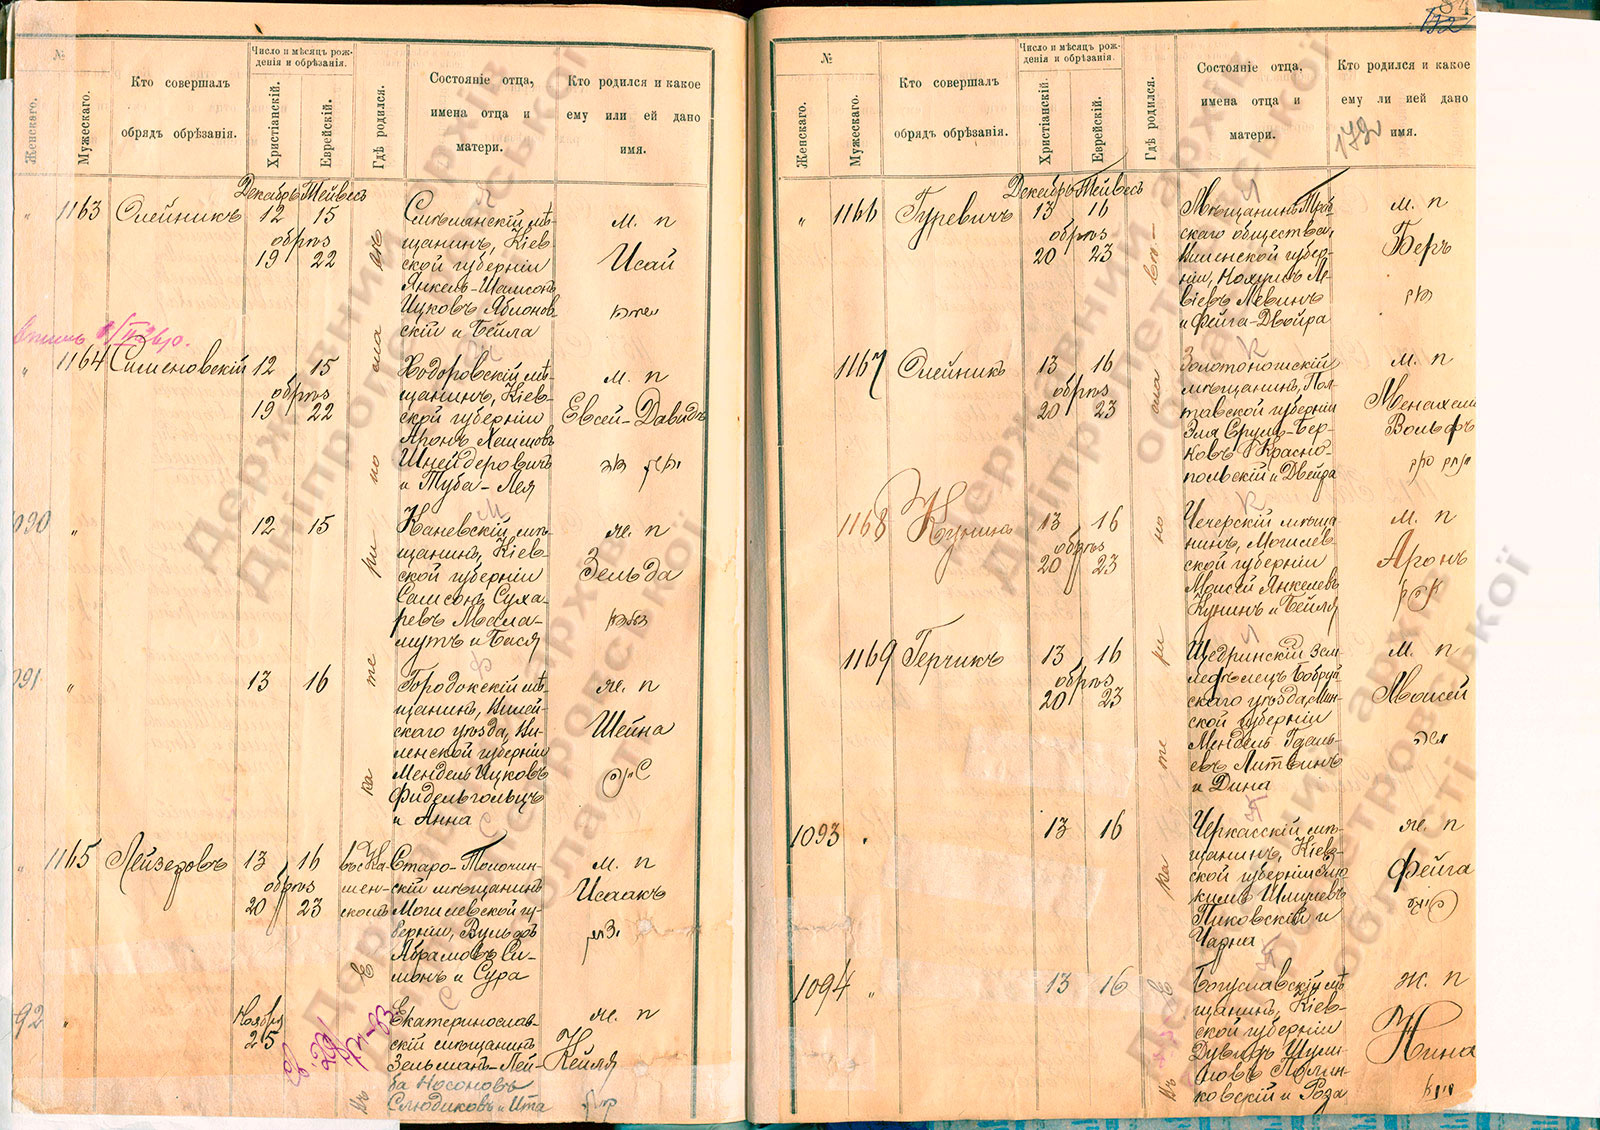 №
Женскаго.
Мужескаго.
Кто совершалъ
обрядъ обрѣзанія.
Число и мѣсяцъ рож-
денія и обрѣзанія.
Христіанскій.
Еврейскій.
Гдѣ родился.
Состояніе отца,
имена отца и
матери.
Кто родился и какое
ему или ей дано
имя.
Декабрь Тейвесъ
1163 Олейникъ 12 15
обрѣз
19 22
щанинъ, Кіев-
ской губерніи
Янкель-Шамсонъ
Ицковъ Яблонов-
скій и Бейла
м. п
Исай
1164 Сименовскій 12 15
обрѣз
19 22
Ходоровскій мѣ-
щанинъ, Кіев-
ской губерніи
Аронъ Хаимовъ
Шнейдеровичъ
и Туба-Лея
м. п
Евсей-Давидъ
12 15
Каневскій мѣ-
щанинъ, Кіев-
ской губерніи
Самсонъ Суха-
ревъ Мала-
мутъ и Бася
ж. п
Зельда
13 16
Городокскій мѣ-
щанинъ, Вилей-
скаго уѣзда, Ви-
ленской губерніи
Мендель Ицковъ
Фидельгольцъ
и Анна
ж. п
Шейна
1165 Лейзеровъ 13 16
обрѣз
20 23
въ с Ка-
мен-
скомъ
Старо-Толочин-
скій мѣщанинъ
Могилевской гу-
берніи, Вульфъ
Абрамовъ Си-
монъ и Сура
м. п
Исаакъ
92
Ноября
25
Екатеринослав-
скій мѣщанинъ
Зельманъ-Лей-
ба Носоновъ
Слюдиковъ и Ита
ж. п
Кейля
въ Екатеринославѣ
132
№
Женскаго.
Мужескаго.
Кто совершалъ
обрядъ обрѣзанія.
Число и мѣсяцъ рож-
денія и обрѣзанія.
Христіанскій.
Еврейскій.
Гдѣ родился.
Состояніе отца,
имена отца и
матери.
Кто родился и какое
ему или ей дано
имя.
Декабрь Тейвесъ
1166 Гуревичъ 13 16
обрѣз
20 23
Мѣщанинъ
скаго общества,
Виленской губер-
ніи, Нохумъ Ле-
віевъ Левинъ
и Фейга-Двойра
м. п
Беръ
1167 Олейникъ 13 16
обрѣз
20 23
Золотоношскій
мѣщанинъ, Пол-
тавской губерніи
Эля Сруль-Бер-
ковъ Красно-
польскій и Двейра
м. п
Менахем
Вольфъ
1168 Кунинъ 13 16
обрѣз
20 23
Чечерскій мѣща-
нинъ, Могилев-
ской губерніи
Моисей Янкелевъ
Кунинъ и Бейля
м. п
Аронъ
1169 Герчикъ 13 16
обрѣз
20 23
Щедринскій зем-
ледѣлецъ Бобруй-
скаго уѣзда, Мин-
ской губерніи
Мендель
евъ Литвинъ
и Дина
м. п
Моисей
1093 13 16
Черкасскій мѣ-
щанинъ, Кіев-
ской губерніи
Шмулевъ
Пиковскій и
Чарна
ж. п
Фейга
1094 13 16
Богуславскій мѣ
щанинъ, Кіев-
ской губерніи
Шули-
мовъ Полин-
ковскій и Роза
ж. п
Нина
въ Екатеринославѣ
Державний архів
Дніпропетровської
області